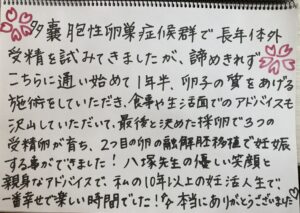 多嚢胞性卵巣症候群で長年体外
受精を試みてきましたが、諦めきれず
こちらに通い始めて1年半、卵子の質をあげる
施術をしていただき、食事や生活面でのアドバイスも
沢山していただいて、最後と決めた採卵で3つの
受精卵が育ち、2つ目の卵の融解胚移植で妊娠
する事ができました!八塚先生の優しい笑顔と
親身なアドバイスで、私の10年以上の妊活人生で、
一番幸せで楽しい時間でした!本当にありがとうございました